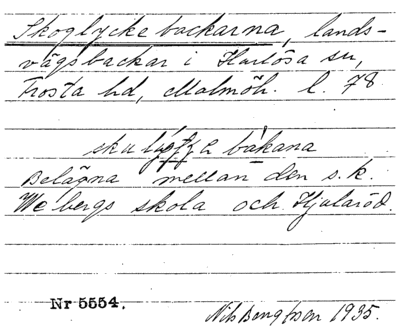 Skoglyckebackarna, lands-
vägsbackar i Harlösa sn,
Frosta hd, Malmöh. l. 78
bákana
Belägna mellan den s.k.
Webergs skola och Hjularöd.
Nr 5554.
Nils Bengtsson 1935.